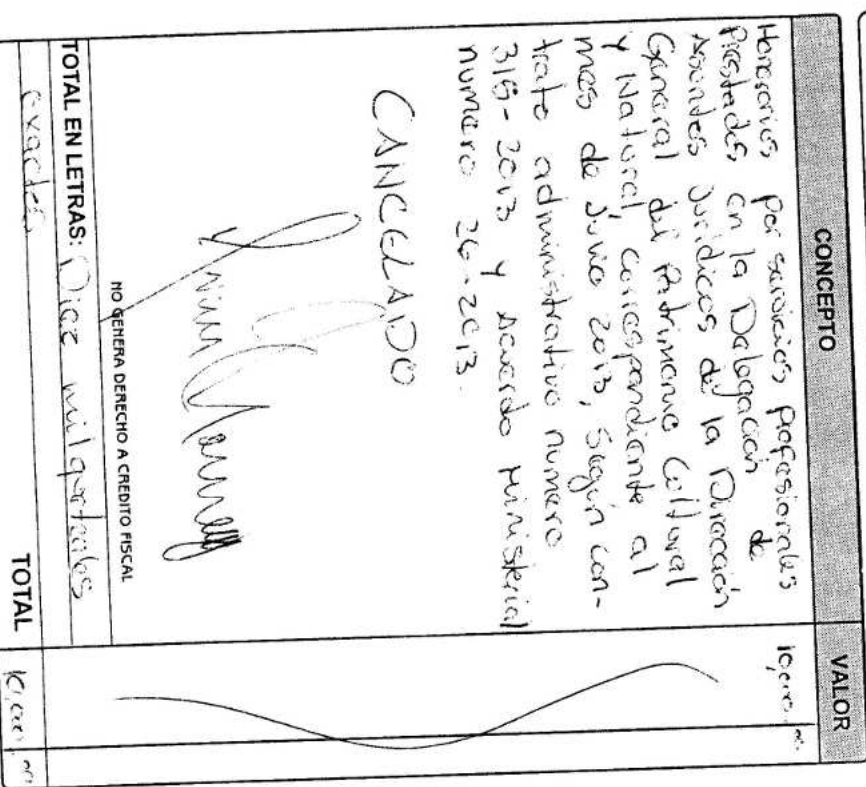 CONCEPTO
VALOR
Honorarios por servicios profesionales
10,000.00
Prestados en la Delegación de
Asuntos Jurídicos de la Dirección
General del Patrimonio Cultural
y Natural, correspondiente al
mes de Junio 2013, Según con-
trato administrativo numero
315-2013 y Acuerdo Ministerial
numero 26-2013.
CANCELADO
NO GENERA DERECHO A CREDITO FISCAL
TOTAL EN LETRAS: Diez mil quetzales
exactos
TOTAL
10,000.00